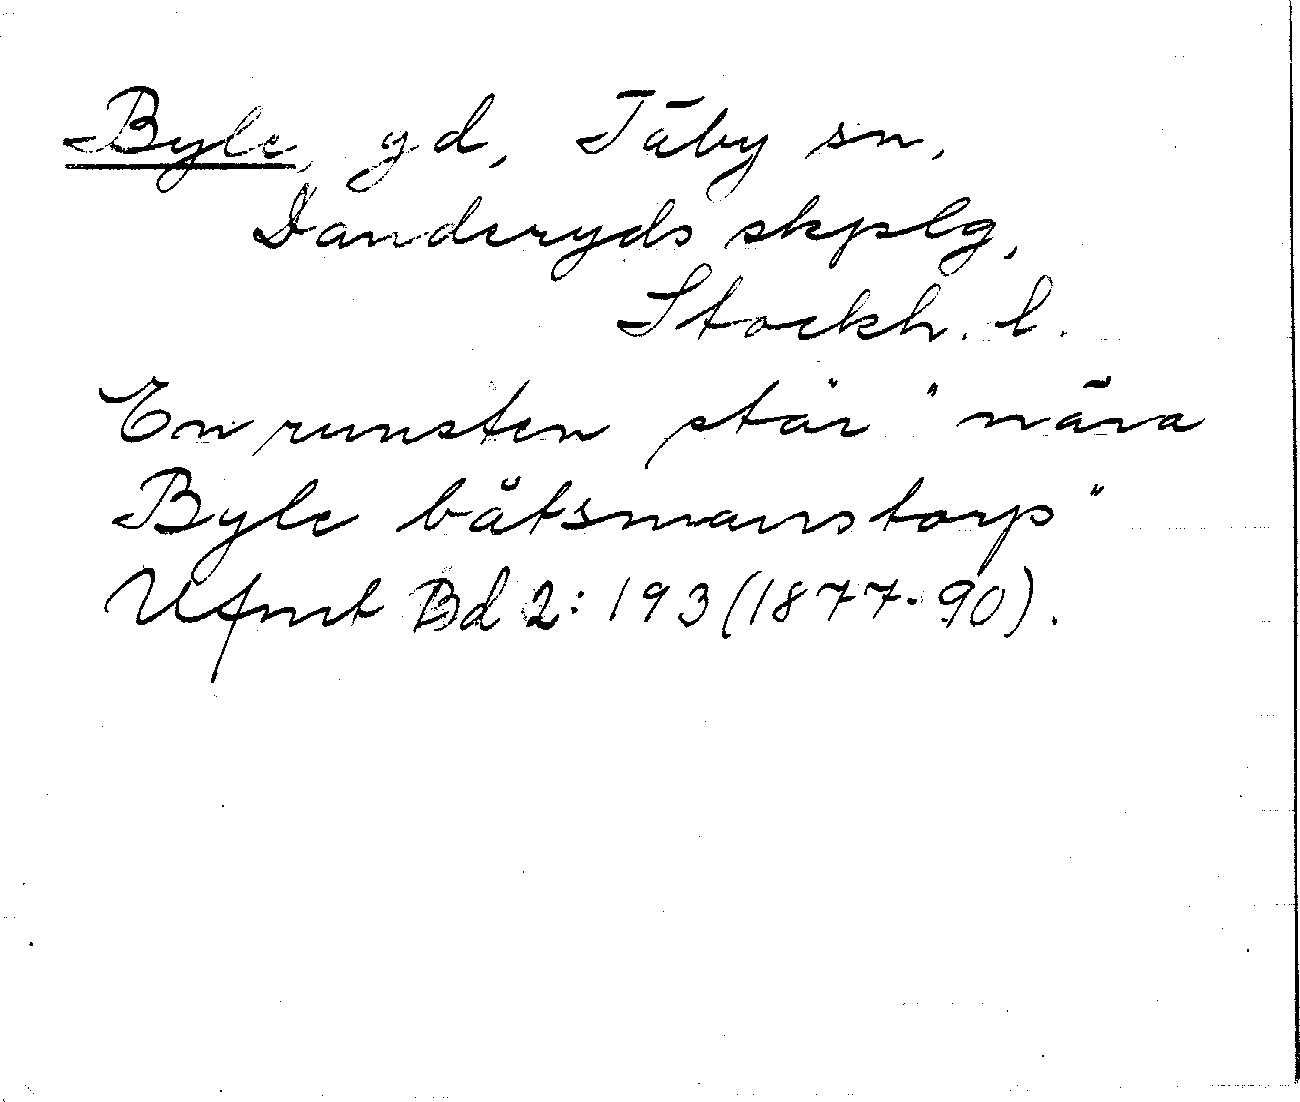 Byle, gd, Täby sn,
Danderyds skplg,
Stockh. l.
En runsten står "nära
Byle båtsmanstorp"
Ufmt Bd 2: 193 (1877-90).